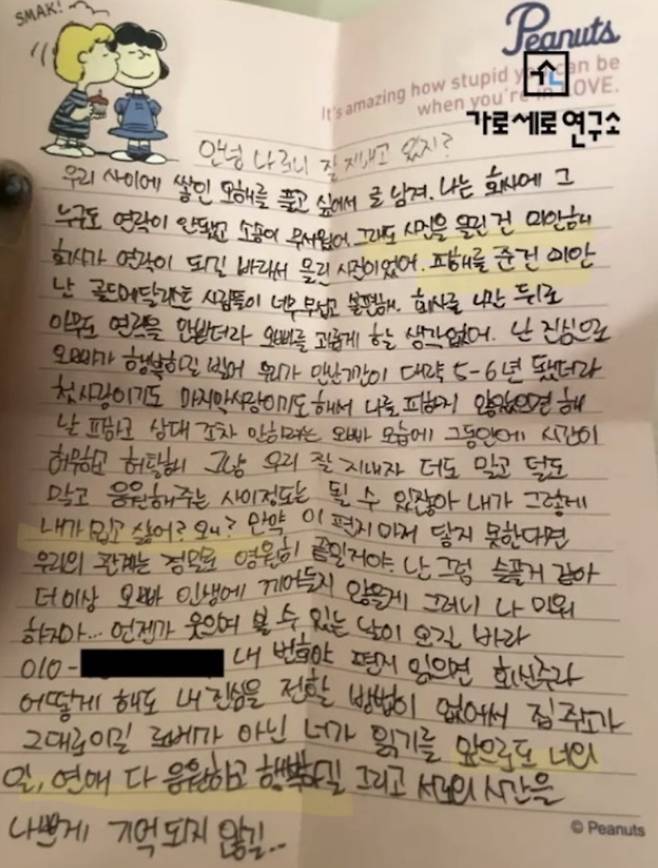 SMAK!
Peanuts
It's amazing how stupid you can be
when you're in LOVE.
가로세로연구소
안녕 나르니 잘 지내고 있지?
우리 사이에 쌓인 오해를 풀고 싶어서 글 남겨. 나는 회사에 그
누구도 연락이 안됐고 소송이 무서웠어. 그래도 사진을 올린 건 미안해
회사가 연락이 되길 바라서 올린 사진이었어. 피해를 준건 미안
난 골드메달리스트 사람들이 너무 무섭고 불편해. 회사를 나간 뒤로
아무도 연락을 안받더라 오빠를 괴롭게 하는 생각없어. 난 진심으로
오빠가 행복하길 빌어 우리가 만난기간이 대략 5-6년 됐더라
첫사랑이기도 마지막사랑이기도해서 나를 피하지 않았으면 해
날 피하고 상대 조차 안하려는 오빠 모습에 그동안에 시간이
허무하고 허탈해 그냥 우리 잘 지내자 더도 말고 덜도
말고 응원해주는 사이정도는 될 수 있잖아 내가 그렇게
내가 밉고 싫어? 왜? 만약 이 편지마저 닿지 못한다면
우리의 관계는 정말로 영원히 끝일거야 난 그럼 슬플거 같아
더이상 오빠 인생에 끼어들지 않을게 그러니 나 미워
하지마... 언젠가 웃으며 볼 수 있는 날이 오길 바라
010- 내 번호야 편지 읽으면 회신주라
어떻게 해도 내 진심을 전할 방법이 없어서 집 주소가
그대로이길 로버가 아닌 너가 읽기를 앞으로도 너의
일, 연애 다 응원하고 행복하길 그리고 서로의 시간을
나쁘게 기억되지 않길...
© Peanuts